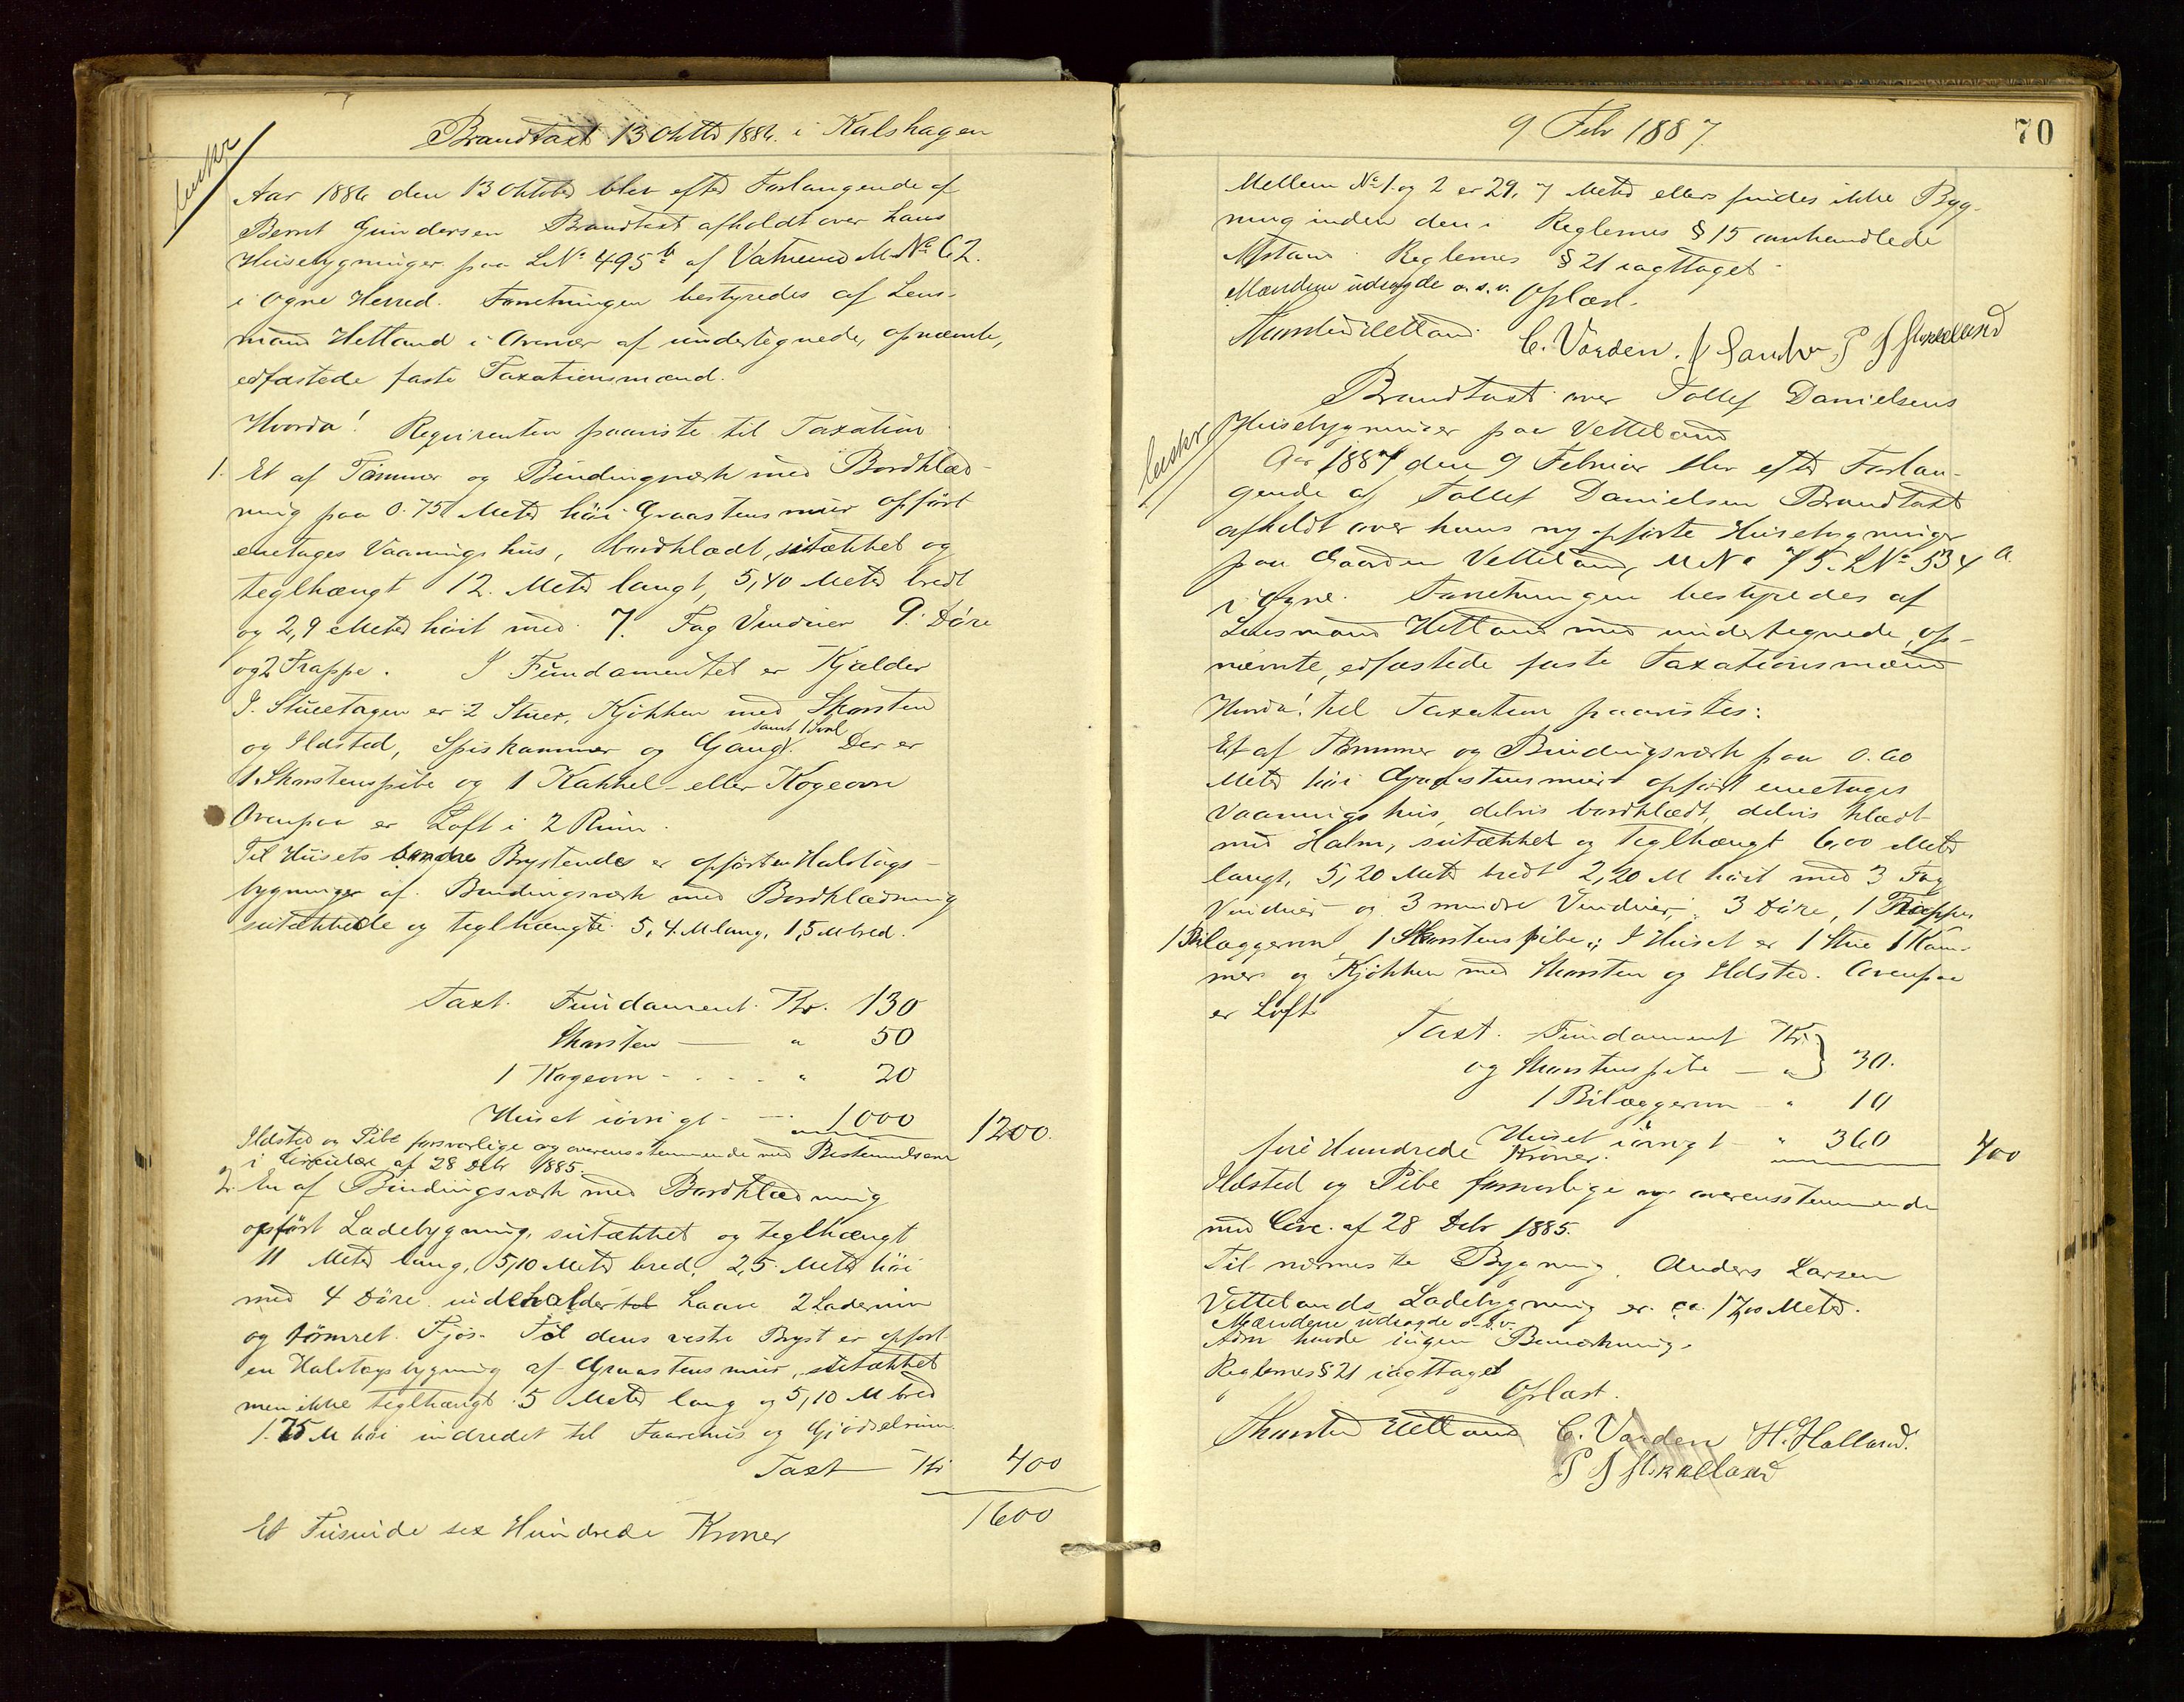 Brandtaxt 13 Oktbr 1886. i Kalshagen
Aar 1886 den 13 Oktober blev efter Forlangende af
Bernt Gundersen Brandtaxt afholdt over hans
Husebygninger paa LNo 495b af Vatneend M No 62.
i Ogne Herred. Forretningen bestyredes af Lens-
mand Hetland i Overvær af undertegnede, opnævnte,
edfæstede faste Taxationsmænd.
Hvorda! Reqvirenten paaviste til Taxation
1. Et af Tømmer og Bindingværk med Bordklæd-
ning paa 0.75 Meter høi Graastensmuur opført
enetages Vaaningshus, bordklædt, sutækket og
teglhængt 12. Meter langt, 5,40 Meter bredt
og 2,9 Meter høit med 7. Fag Vinduer 9. Døre
og 2 Trappe. I Fundamentet er Kjælder
I. Stueetagen er 2 Stuer, Kjøkken med Skorsten
og Ildsted, Spiskammer og Gang samt 1 Bod. Der er
1 Skorstenspibe og 1 Kakkel- eller Kogeovn
Ovenpaa er Loft i 2 Rum.
Til Husets Brystende er opført en Halvtags-
bygninger af Bindingsværk med Bordklædning
sutækkede og teglhængte 5,4 M lang, 1,5 M bred.
Taxt. Fundament. Kr. 130
Skorsten — " 50
1 Kogeovn - - - - " 20
Huset iøvrigt - - 1000 1200.
Ildsted og Pibe forsvarlige og overensstemmende med Bestemmelserne
i Circulære af 28 Debr 1885.
2. En af Bindingsværk med Bordklædning
opført Ladebygning, sutækket og teglhængt
11 Meter lang, 5,10 Meter bred, 2,5 Meter høi
med 4 Døre indeholder Laave 2 Laderum
og tømret Fjøs. Til dens vestre Bryst er opført
en Halvtagsbygning af Graastensmuur, sutækket
men ikke teglhængt 5 Meter lang og 5,10 M bred
1.75 M høi indredet til Faarehus og Gjødselrum
Taxt Kr 400
1600
Et Tusinde sex Hundrede Kroner
9 Febr 1887.
70
Mellem No 1 og 2 er 29,7 Meter ellers findes ikke Byg-
ning inden den i Reglernes § 15 omhandlede
Afstand. Reglernes § 21 iagttaget.
Mændene udsagde o.s.v. Oplæst.
Hetland. C. Varden.
Brandtaxt over Tollef Danielsens
Husebygninger paa Vetteland
Aar 1887 den 9 Februar blev efter Forlan-
gende af Tollef Danielsen Brandtaxt
afholdt over hans ny opførte Husebygninger
paa Gaarden Vetteland, M No 75. LNo 534 a.
i Ogne. Forretningen bestyredes af
Lensmand Hetland med undertegnede, op-
nævnte, edfæstede faste Taxationsmænd
Hvorda! til Taxation paavistes:
Et af Tømmer og Bindingsværk paa 0.60
Meter høi Graastensmuur opført enetages
Vaaningshus, delvis bordklædt, delvis klædt
med Halm, sutækket og Teglhængt 6,00 Meter
langt, 5,20 Meter bredt 2,20 M høit med 3 Fag
Vinduer og 3 mindre Vinduer, 3 Døre, 1 Trapper
1 Bilæggerovn 1 Skorstenspibe. I Huset er 1 Stue 1 Kam-
mer og Kjøkken med Skorsten og Ildsted. Ovenpaa
er Loft.
Taxt. Fundament Kr.
og Skorstenspibe — " } 30.
1 Bilæggerovn - " 10
Huset iøvrigt " 360 400
fire Hundrede Kroner.
Ildsted og Pibe forsvarlige og overensstemmende
med Circ. af 28 Debr 1885.
Til nærmeste Bygning, Anders Larsen
Vettelands Ladebygning er ca. Meter.
Mændene udsagde o.s.v.
havde ingen Bemærkning.
Reglernes § 21 iagttaget
Oplæst.
Hetland C. Varden H. Holland.